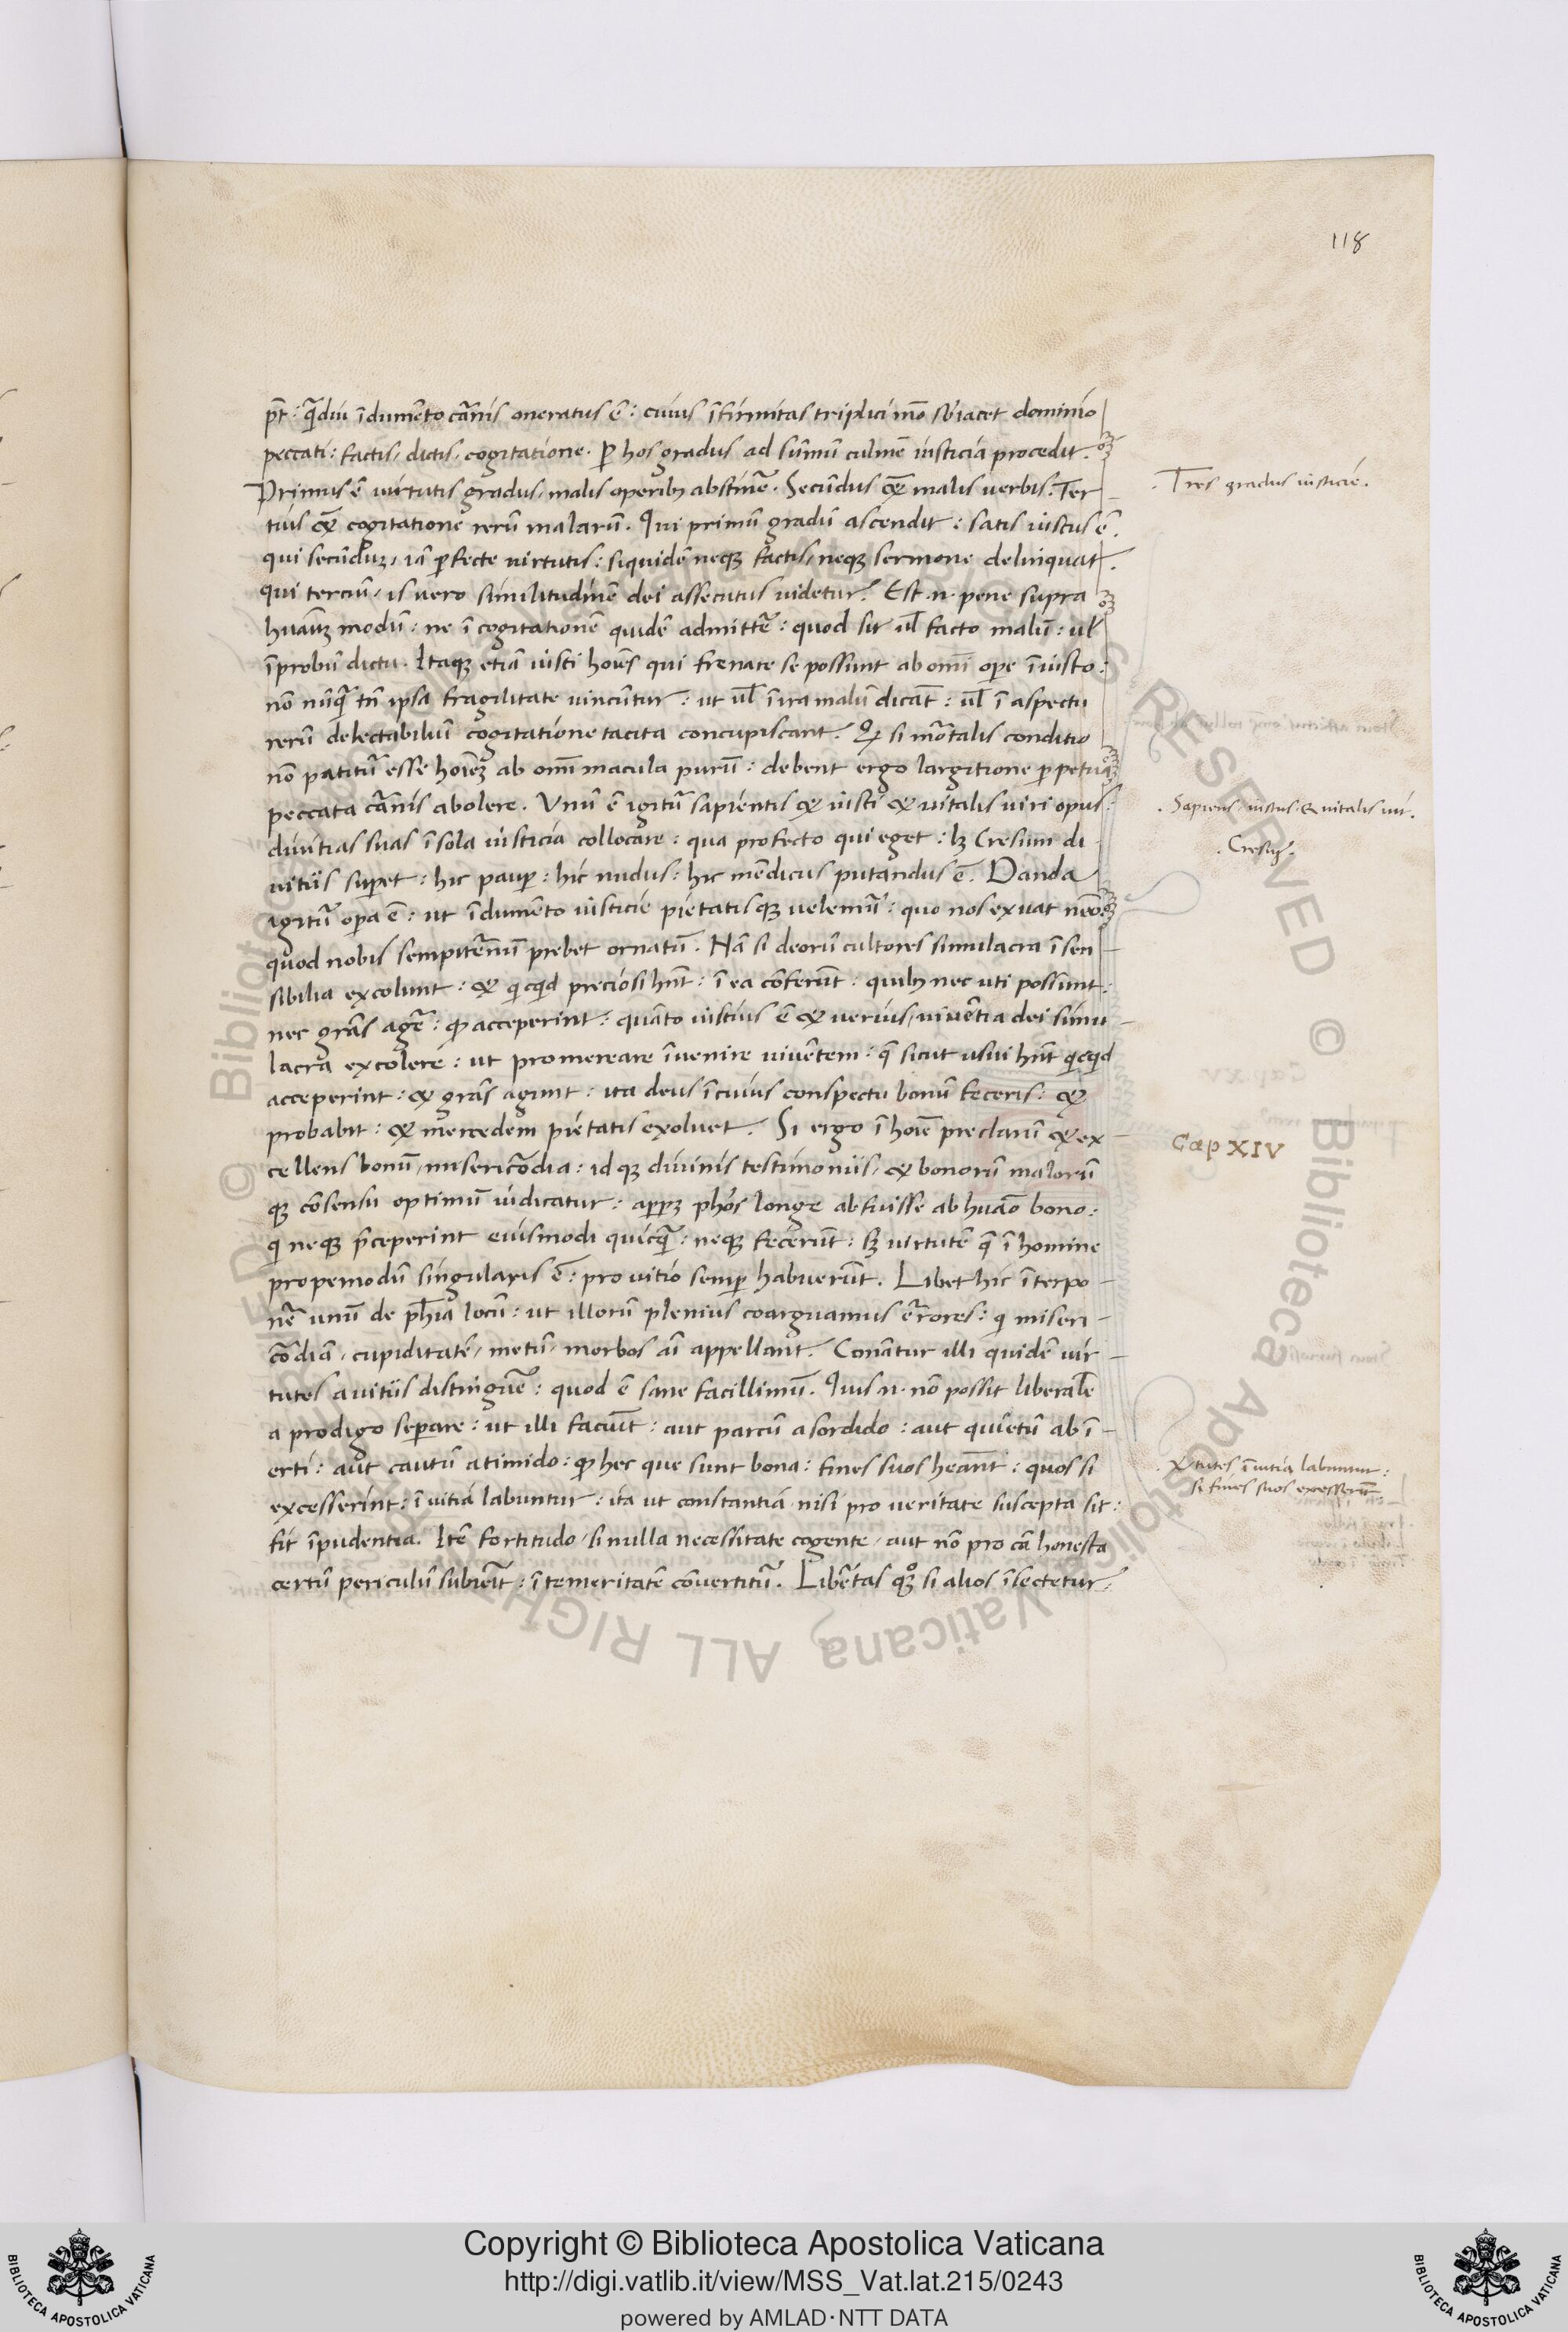 118
pt̄: q̄diu ī dumēto cārnis oneratus ē: cuius īfirmitas triplici mō sƀiacet dominio
peccati: factis, dictis, cogitatione. P hos gradus ad sūmū culmē iusticia procedit.
Primus ē uirtutis gradus, malis operibȝ abstinē. Secūdus etiā malis uerbis. Ter
tius etiā cogitatione rerū malarū. Qui primū gradū ascendit: satis iustus ē.
qui secūduȝ, iā pfecte uirtutis: siquidē neqȝ factis, neqȝ sermone delinquat.
qui terciū, is uero similitudinē dei assecutus uidetur. Est .n. pene supra
huānȝ modū: ne ī cogitationē quidē admittē: quod sit ul̄ facto malū: ul̄
īprobū dictu. Itaqȝ etiā iusti hoīes qui frenare se possunt ab omī ope īiusto:
non nūq̄ tn̄ ipsa fragilitate uincūtur: ut ul̄ ī ira malū dicāt: ul̄ ī aspectu
rerū delectabiliū cogitatione tacita concupiscant. Qȝ si mōrtalis conditio
nō patitū esse hoīeȝ ab omī macula purū: debent ergo largitione ppetua
peccata cārnis abolere. Vnū ē igitū sapientis & iusti & uitalis uiri opus:
diuitias suas ī sola iusticia collocare: qua profecto qui eget: lȝ Cresum di
uitiis supet: hic paup: hic nudus: hic mēdicus putandus ē. Danda
igitū opa ē: ut īdumēto iusticie pietatisqȝ uelemū: quo nos exuat nemo:
quod nobis sempitērnū prebet ornatū. Nā si deorū cultores simulacra īsen
sibilia excolunt: & qicqid preciosi hn̄t: ī ea cōferūt: quibȝ nec uti possunt:
nec grās agē: qȝ acceperint: quāto iustius ē & uerius, uiuētia dei simu
lacra excolere: ut promereare īuenire uiuētem: q̄ sicut usui hn̄t qicqid
acceperint: & grās agunt: ita deus ī cuius conspectu bonū feceris: &
probabit: & mercedem pietatis exoluet. Si ergo ī hoīe preclarū & ex
cellens bonū, misericōdia: idqȝ diuinis testimoniis, & bonorū malorū
qȝ cōsensu optimū iudicatur: apparȝ phōs longe abfuisse ab huāo bono:
qi neqȝ p̄ceperint eiusmodi quicq̄: neqȝ fecerūt: sȝ uirtutē q̄ ī homine
propemodū singularis ē: pro uitio semp habuerūt. Libet hic īterpo
nē unū de ph̄ia locū: ut illorū plenius coarguamus ērrores: qi miseri
cōdiā, cupiditatē, metū, morbos aī appellant. Conātur illi quidē uir
tutes a uitiis distinguē: quod ē sane facillimū. Quis .n. nō possit liberalē
a prodigo separe: ut illi faciūt: aut parcū a sordido: aut quietū ab ī
erti: aut cautū a timido: qȝ hec que sunt bona: fines suos heānt: quos si
excesserint: ī uitia labuntur: ita ut constantia nisi pro ueritate suscepta sit:
fit īpudentia. Itē fortitudo, si nulla necessitate cogente, aut nō pro cā honesta
certū periculū subieīt: ī temeritatē cōuertitū. Libērtas qȝ si alios īsectetur:
. Tres gradus iusticie.
. Sapiens, iustus, & uitalis uir.
. Cresus.
Cap XIV
. Virtutes ī uitia labuntur:
si fines suos excesserint.
Copyright © Biblioteca Apostolica Vaticana
http://digi.vatlib.it/view/MSS_Vat.lat.215/0243
powered by AMLAD·NTT DATA
BIBLIOTECA APOSTOLICA VATICANA
BIBLIOTECA APOSTOLICA VATICANA
© Biblioteca Apostolica Vaticana ALL RIGHTS RESERVED